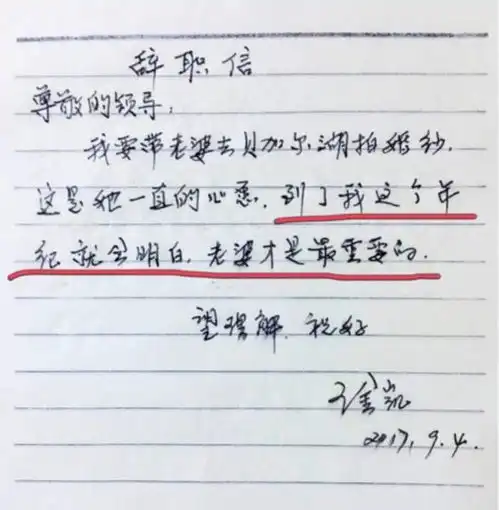 辞职信
尊敬的领导：
我要带老婆去贝加尔湖拍婚纱.
这是她一直的心愿. 到了我这个年
纪就会明白. 老婆才是最重要的.
望理解. 祝好
2017. 9. 4.